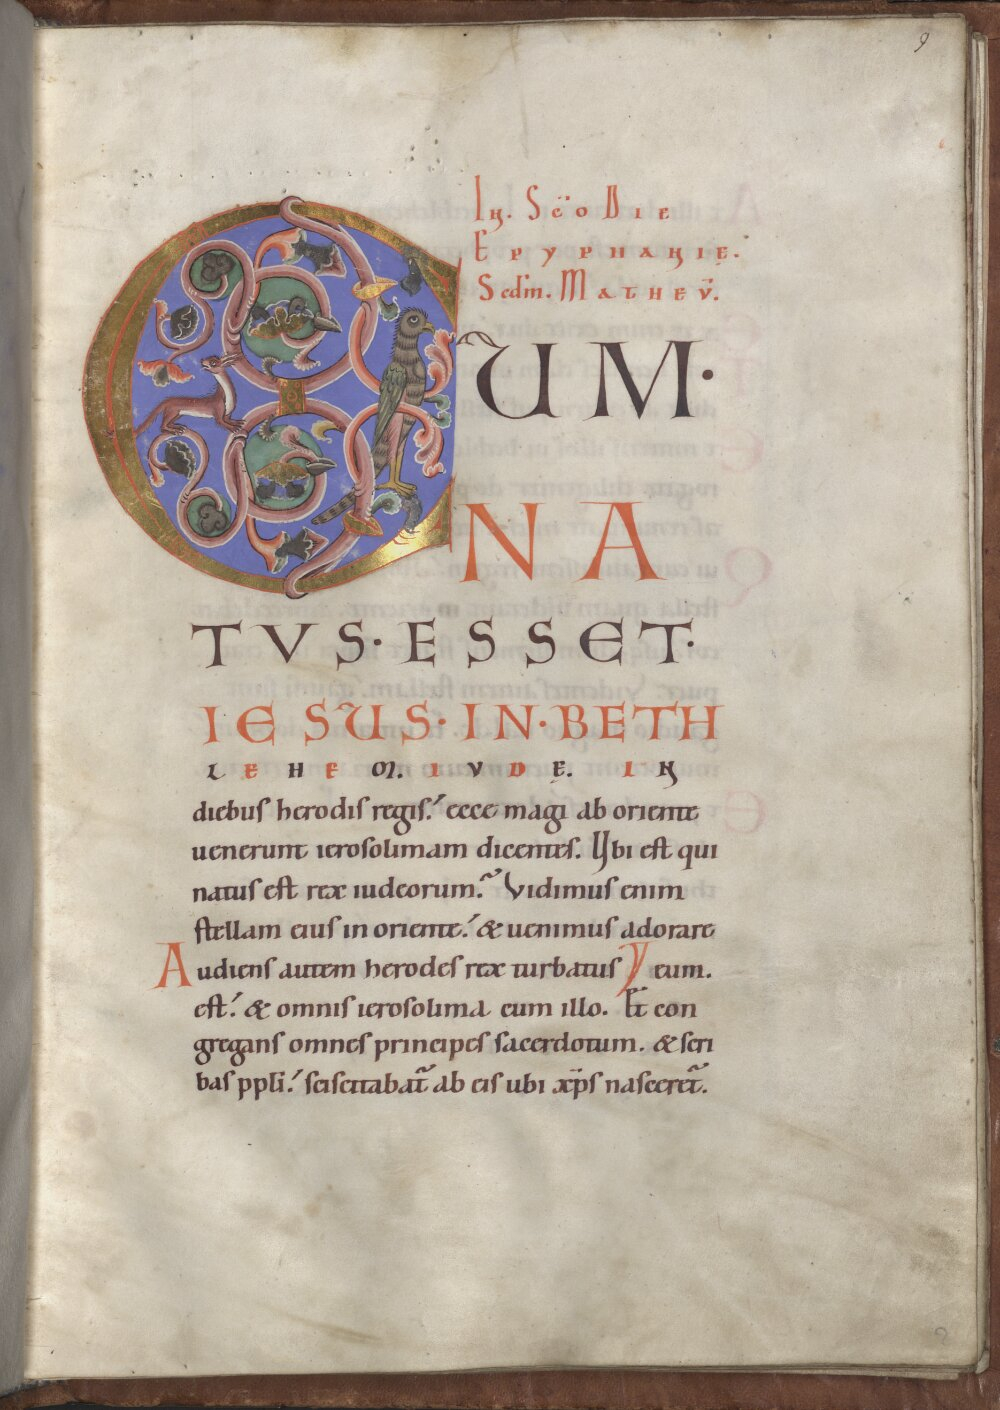 9
IN. SC̄O DIE
EPYPHANIĘ.
Scdm̄. MATHEV̄.
CUM·
NA
TVS· ESSET·
IESUS· IN· BETH
LEHEM. IVDĘ. IN
diebus herodis regis. ecce magi ab oriente
uenerunt ierosolimam dicentes. Vbi est qui
natus est rex iudeorum. Vidimus enim
stellam eius in oriente. & uenimus adorare
eum.
Audiens autem herodes rex turbatus
est. & omnis ierosolima cum illo. Et con
gregans omnes principes sacerdotum. & scri
bas ppli. sciscitabat̄ ab eis ubi xp̄s nasceret̄.